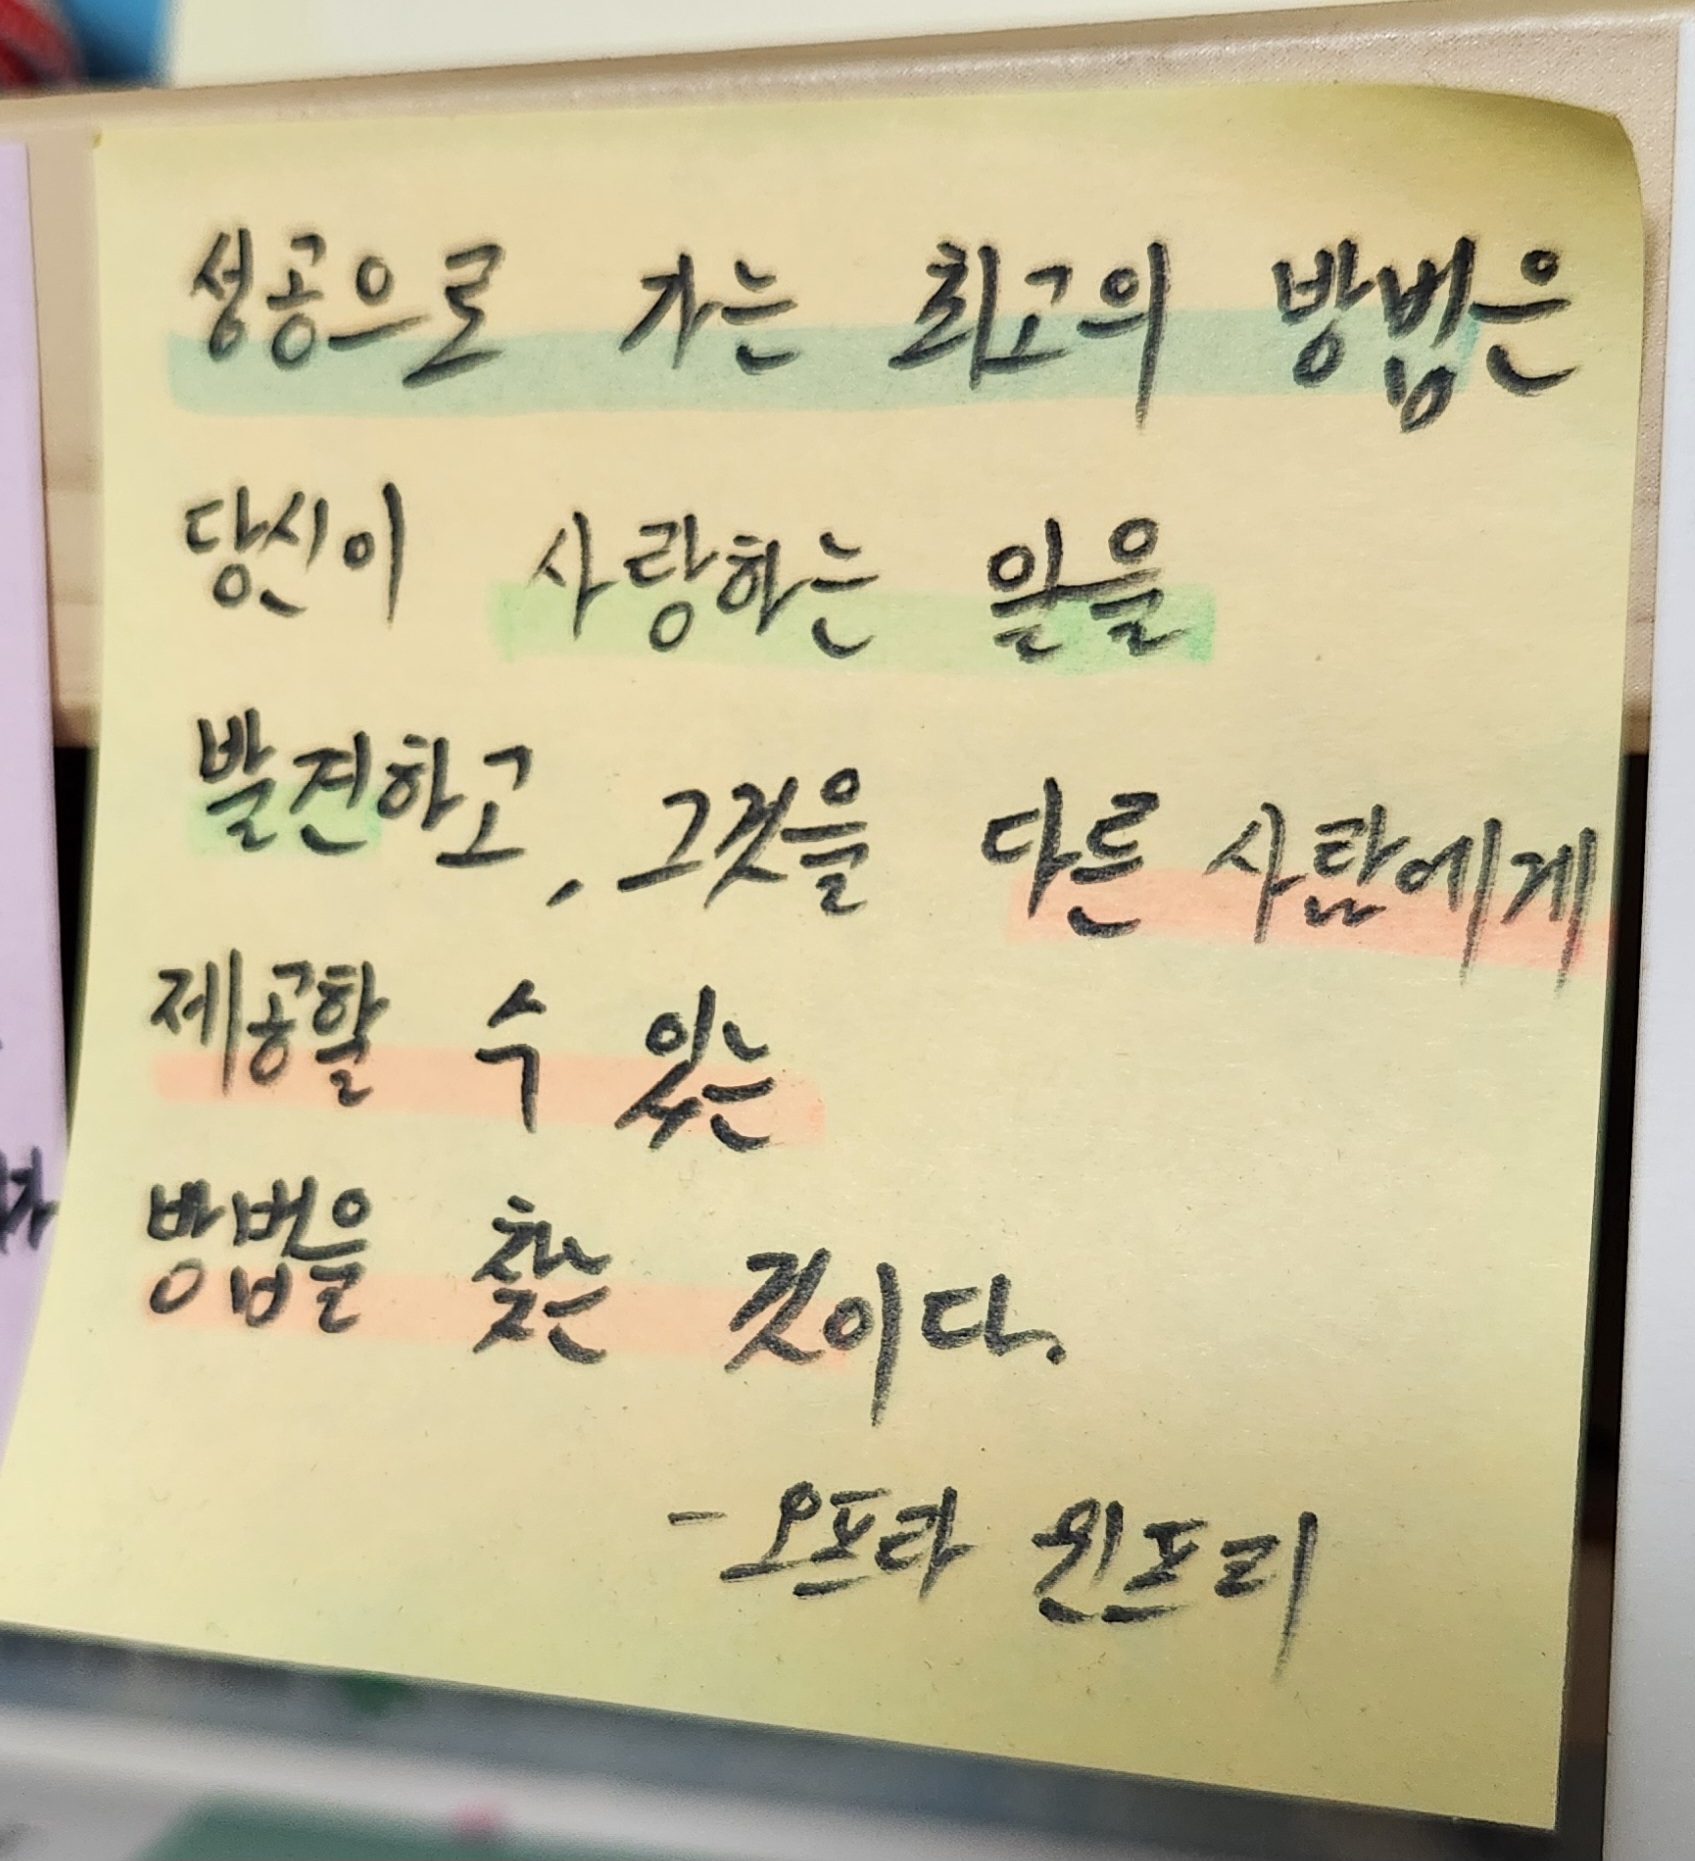 성공으로 가는 최고의 방법은
당신이 사랑하는 일을
발견하고, 그것을 다른 사람에게
제공할 수 있는
방법을 찾는 것이다.
- 오프라 윈프리